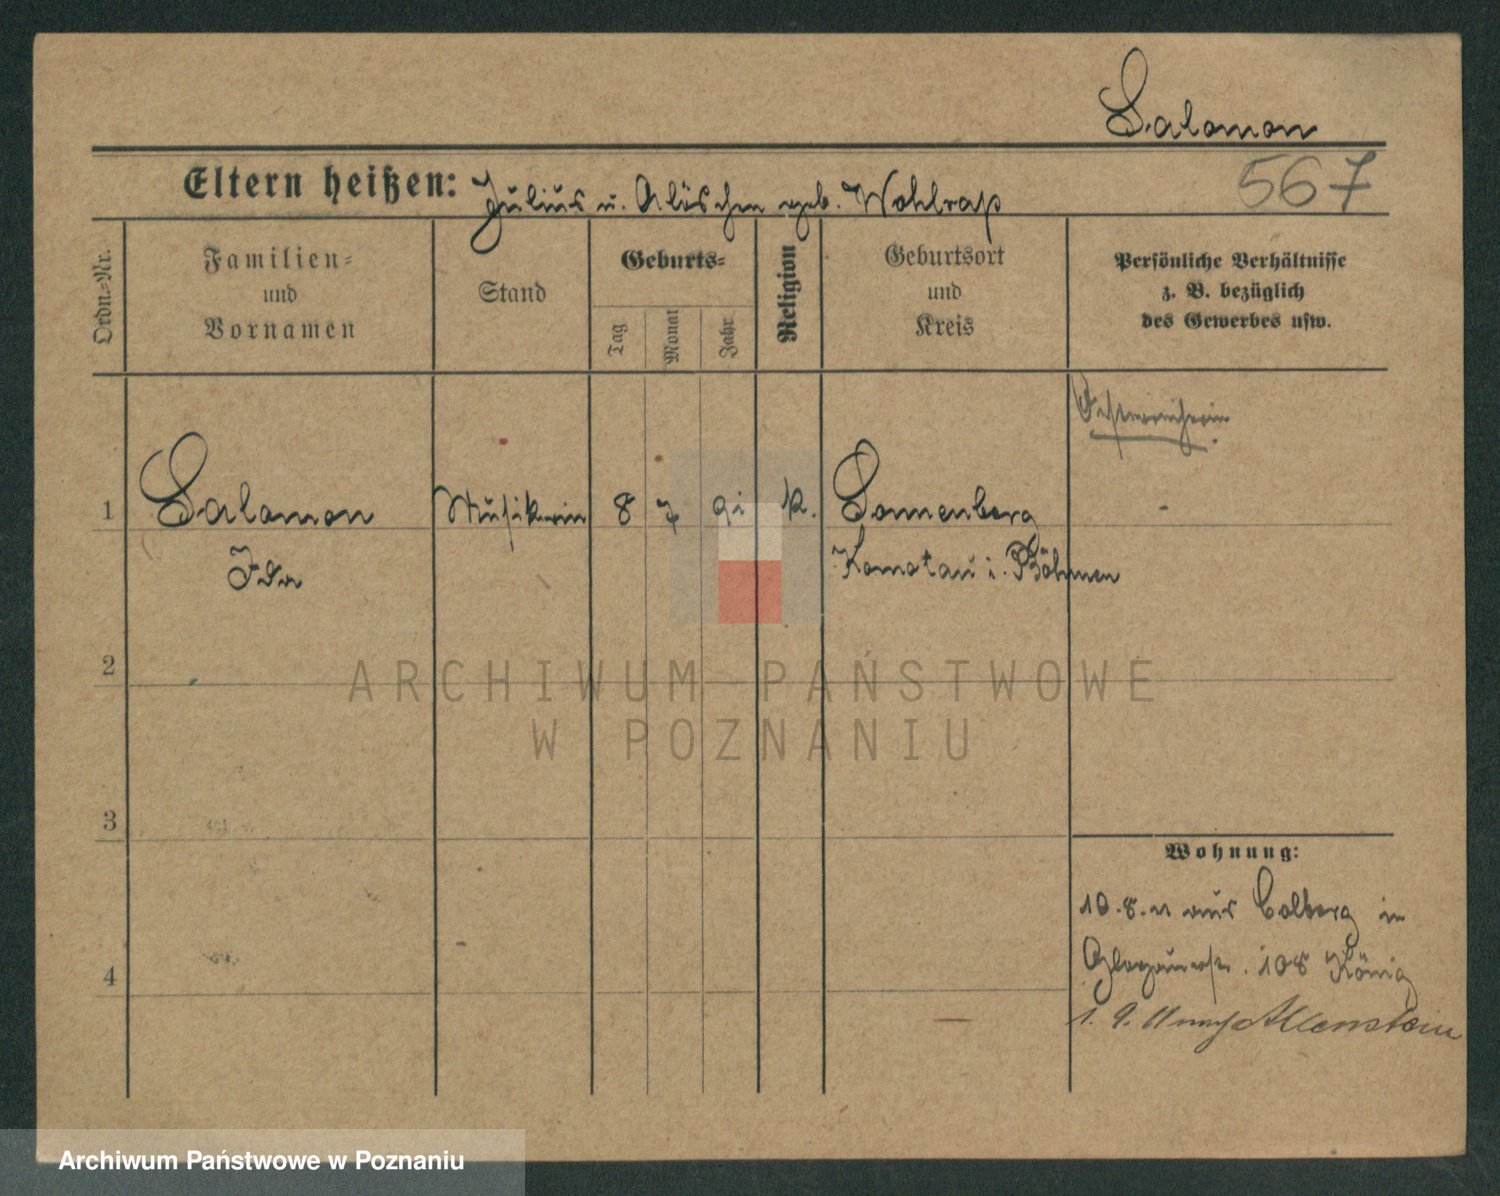 Salomon
567
Eltern heißen: Julius u. Alöschen geb. Wohlrap
Ordn.-Nr.
Familien-
und
Vornamen
Stand
Geburts-
Tag
Monat
Jahr
Religion
Geburtsort
und
Kreis
Persönliche Verhältnisse
z. B. bezüglich
des Gewerbes usw.
Österreicherin
1 Salomon Musikerin 8 7 91 k. Sonnenberg
Ida Komotau i. Böhmen
2
3
4
Wohnung:
10.8.11 aus Colberg in
Glogauerstr. 108 König
1.9.11 nach Allenstein
ARCHIWUM PAŃSTWOWE
W POZNANIU
Archiwum Państwowe w Poznaniu